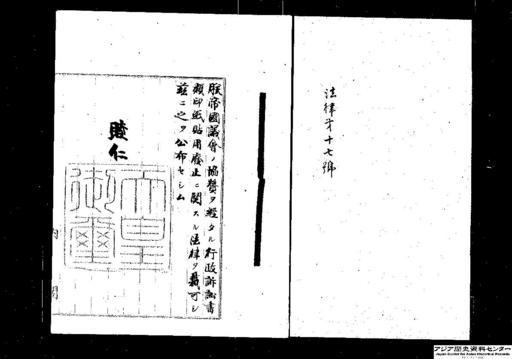 法律第十七號
朕帝國議會ノ協贊ヲ經タル行政訴訟書
類印紙貼用廢止ニ關スル法律ヲ裁可シ
茲ニ之ヲ公布セシム
睦仁
天皇
御璽
内閣
アジア歴史資料センター
Japan Center for Asian Historical Records